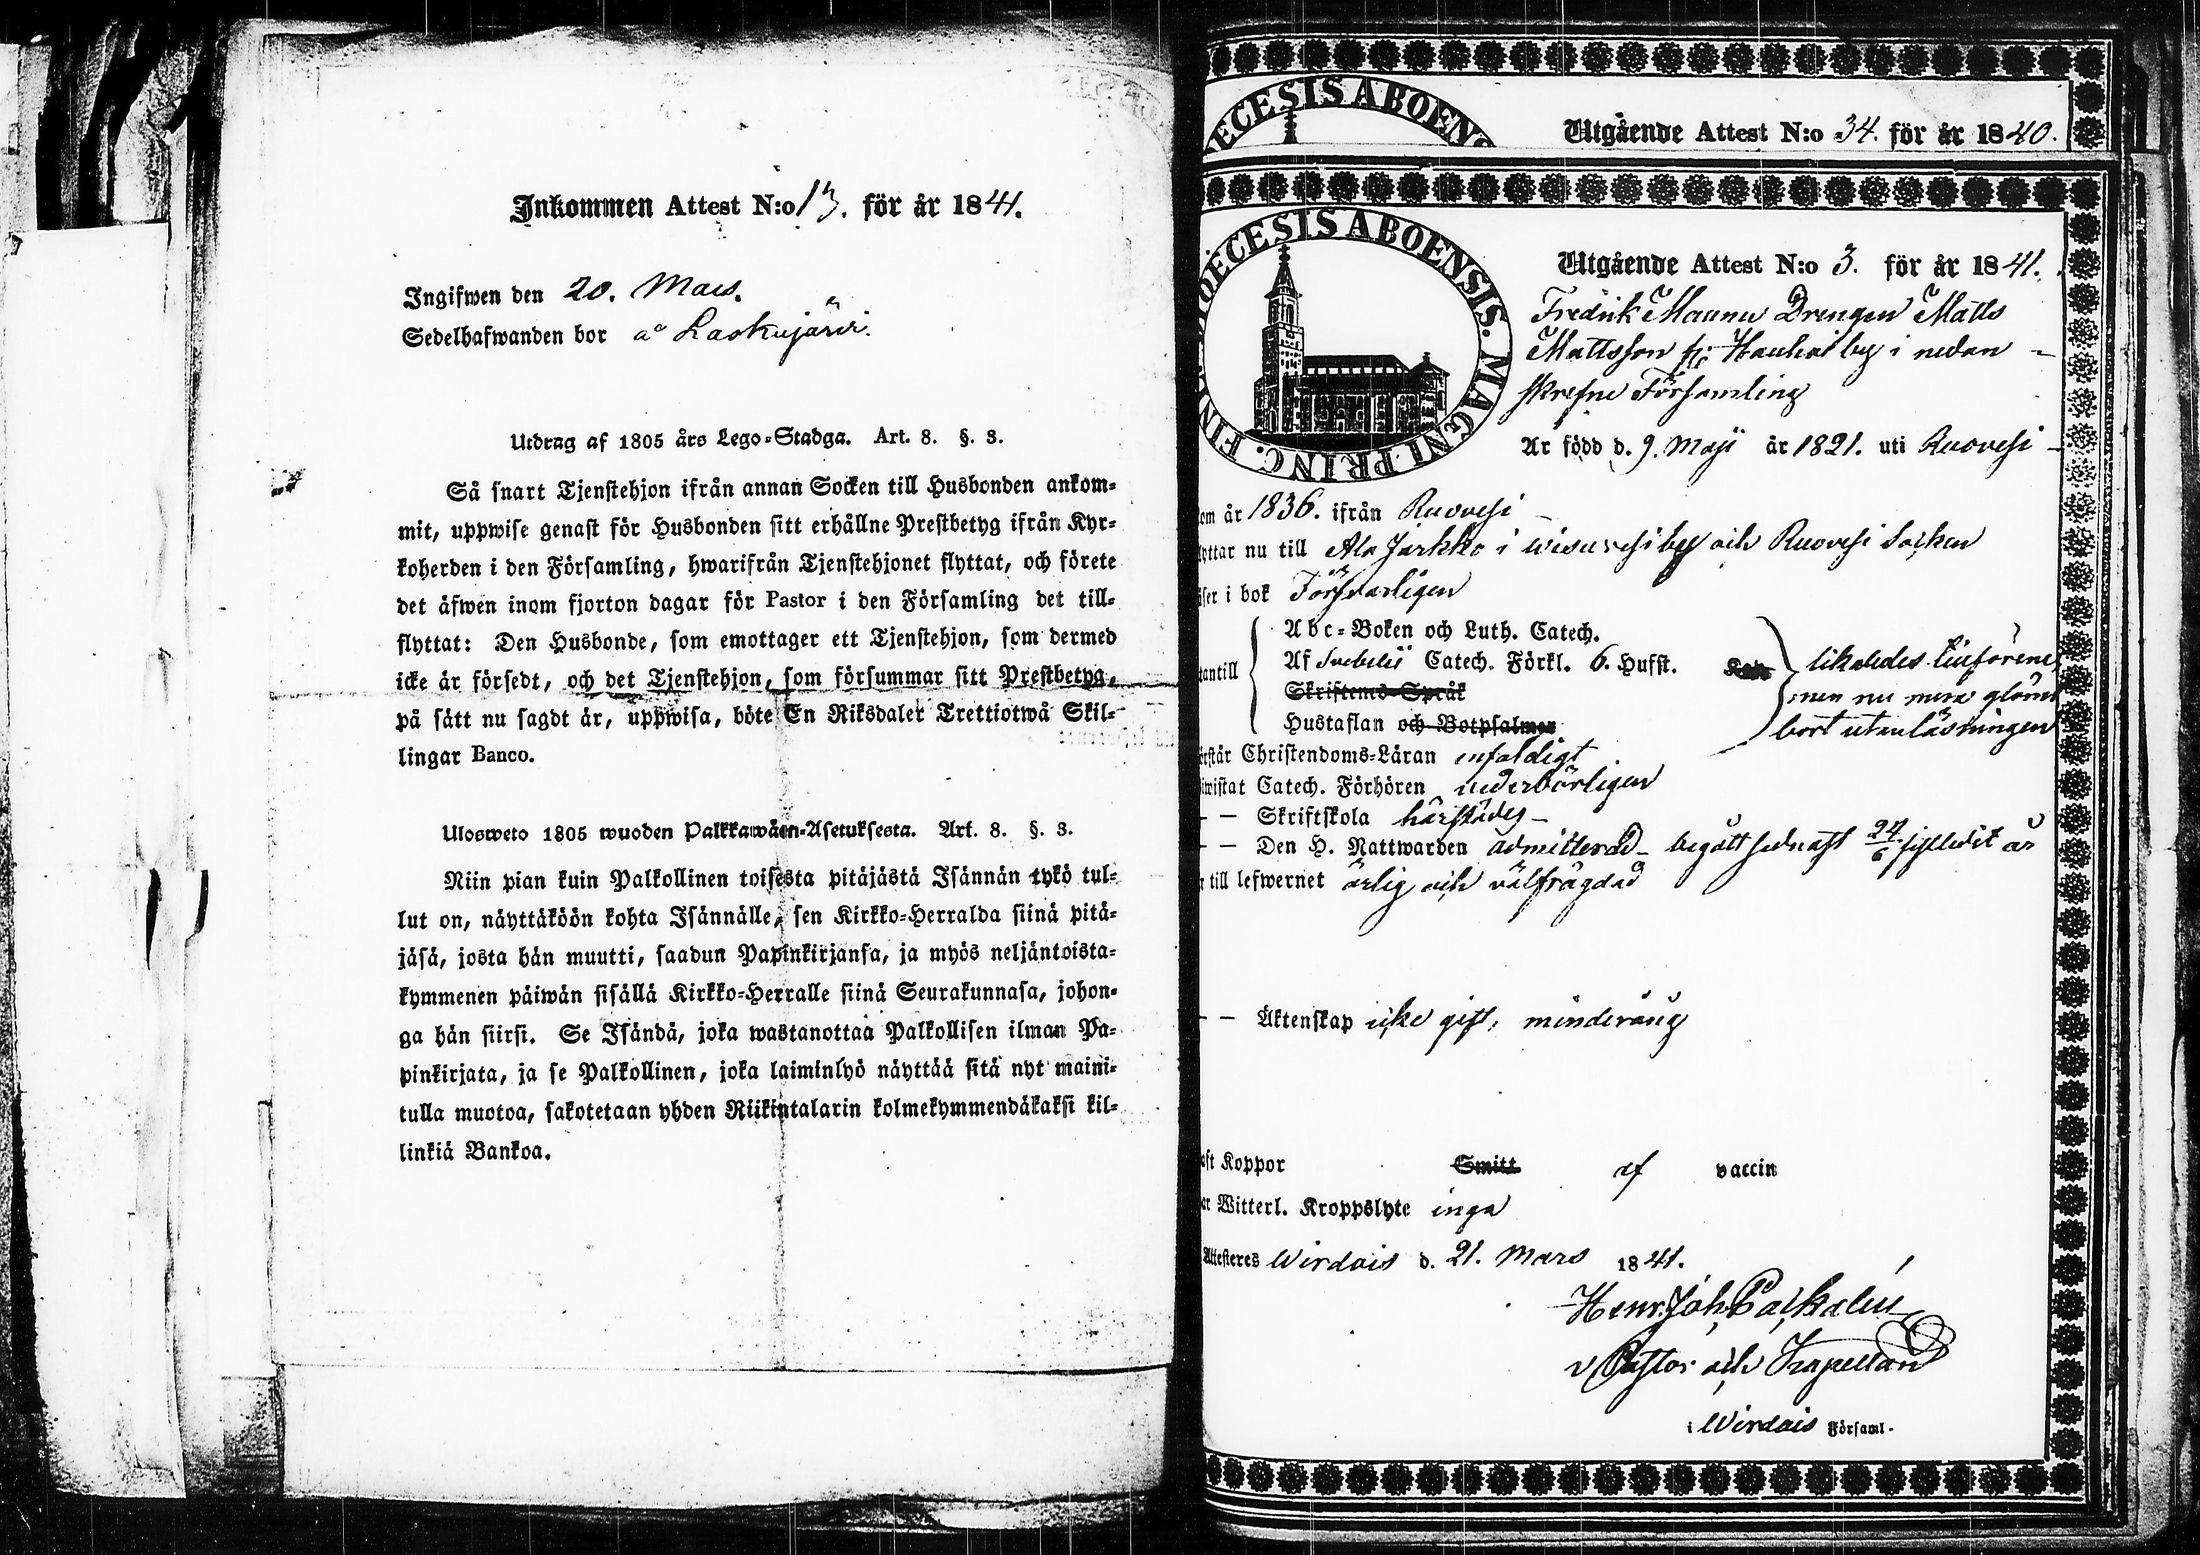 Inkommen Attest N:o 13. för år 1841.
Ingifwen den 20. Mars.
Sedelhafwanden bor å Laskujärvi.
Utdrag af 1805 års Lego-Stadga. Art. 8. §. 3.
Så snart Tjenstehjon ifrån annan Socken till Husbonden ankom-
mit, uppwise genast för Husbonden sitt erhållne Prestbetyg ifrån Kyr-
koherden i den Församling, hwarifrån Tjenstehjonet flyttat, och förete
det äfwen inom fjorton dagar för Pastor i den Församling det till-
flyttat: Den Husbonde, som emottager ett Tjenstehjon, som dermed
icke är försedt, och det Tjenstehjon, som försummar sitt Prestbetyg,
på sätt nu sagdt är, uppwisa, böte En Riksdaler Trettiotwå Skil-
lingar Banco.
Ulosweto 1805 wuoden Palkkawäen-Asetuksesta. Art. 8. §. 3.
Niin pian kuin Palkollinen toisesta pitäjästä Isännän tykö tul-
lut on, näyttäköön kohta Isännälle, sen Kirkko-Herralda siinä pitä-
jäsä, josta hän muutti, saadun Papinkirjansa, ja myös neljäntoista-
kymmenen päiwän sisällä Kirkko-Herralle siinä Seurakunnasa, johon-
ga hän siirsi. Se Isändä, joka wastanottaa Palkollisen ilman Pa-
pinkirjata, ja se Palkollinen, joka laiminlyö näyttää sitä nyt maini-
tulla muotoa, sakotetaan yhden Riikintalarin kolmekymmendäkaksi kil-
linkiä Bankoa.
ECESIS ABOENS
Utgående Attest N:o 34. för år 1840.
DIOECESIS ABOENSIS. MAGNI PRINC. FIN
Utgående Attest N:o 3. för år 1841.
Fredrik Mannu Drengen Matts
Mattsson fr: Hauhai by i nedan-
skrefne Församling
Är född d. 9. Maji år 1821. uti Ruovesi
om år 1836. ifrån Ruovesi
yttar nu till Ala Jarkko i Wisuvesi by och Ruovesi Socken
äser i bok Försvarligen
tantill
Abc-Boken och Luth. Catech.
Af Svebelii Catech. Förkl. 6. Hufst.
Skriftenes Språk
Hustaflan och Botpsalmer
likaledes tillförene,
men nu mera glömt
bort utanläsningen
örstår Christendoms-Läran enfaldigt
iwistat Catech. Förhören vederbörligen
— — Skriftskola härstädes
— — Den H. Nattwarden admitterad begått sednast 24/6 sistledit år
r till lefwernet ärlig och välfrägdad
— — Äktenskap icke gift, minderårig
aft Koppor Smitt af vaccin
ar Witterl. Kroppslyte inga
Attesteres Wirdois d. 21. Mars 1841.
Henr. Joh.
v Pastor och Kapellan
i Wirdois Församl.